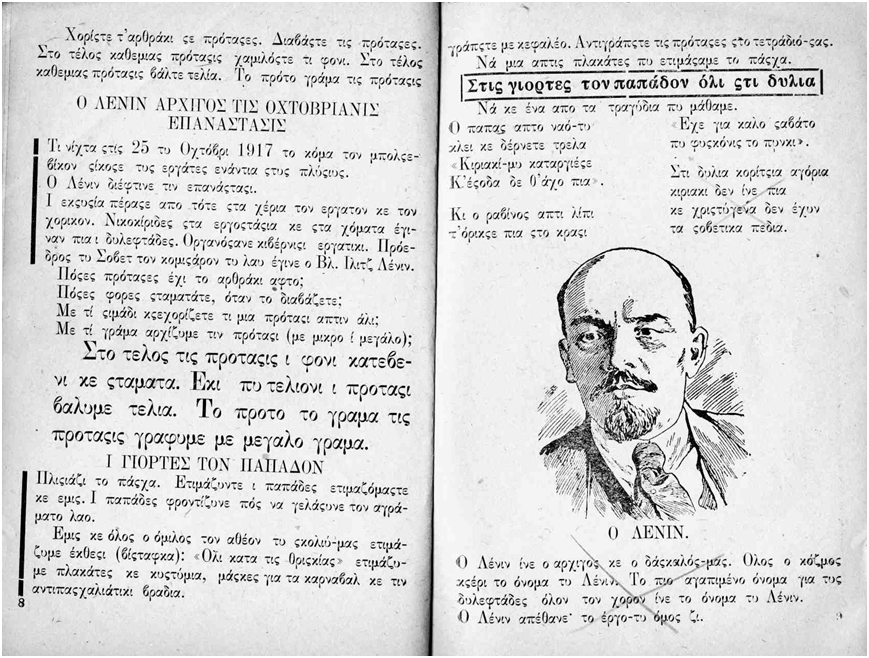 Χορίςτε τ' αρθράκι ςε πρότασες. Διαβάςτε τις πρότασες.
Στο τέλος καθεμιας πρότασις χαμιλόςτε τι φονι. Στο τέλος
καθεμιας πρότασις βάλτε τελία. Το πρότο γράμα τις πρότασις
Ο ΛΕΝΙΝ ΑΡΧΙΓΟΣ ΤΙΣ ΟΧΤΟΒΡΙΑΝΙΣ
ΕΠΑΝΑΣΤΑΣΙΣ
Τι νίχτα ςτίς 25 τυ Οχτόβρι 1917 το κόμα τον μπολςε-
βίκον ςίκοςε τυς εργάτες ενάντια ςτυς πλύςιυς.
Ο Λένιν διέφτινε τιν επανάςταςι.
Ι εκςυςία πέραςε απο τότε ςτα χέρια τον εργατον κε τον
χορικον. Νικοκίριδες ςτα εργοςτάςια κε ςτα χόματα έγι-
ναν πια ι δυλεφτάδες. Οργανόςανε κιβέρνιςι εργατικι. Πρόε-
δρος τυ Σοβετ τον κομιςάρον τυ λαυ έγινε ο Βλ. Ιλιτζ Λένιν.
Πόςες πρότασες έχι το αρθράκι αφτο;
Πόςες φορες ςταματάτε, όταν το διαβάζετε;
Με τί ςιμάδι κςεχορίζετε τι μια πρόταςι απτιν άλι;
Με τί γράμα αρχίζυμε τιν πρόταςι (με μικρο ί μεγάλο);
Στο τελος τις προταςις ι φονι κατεβε-
νι κε ςταματα. Εκι πυ τελιονι ι προταςι
βαλυμε τελια. Το προτο το γραμα τις
προταςις γραφυμε με μεγαλο γραμα.
Ι ΓΙΟΡΤΕΣ ΤΟΝ ΠΑΠΑΔΟΝ
Πλιςιάζι το πάςχα. Ετιμάζυντε ι παπάδες ετιμαζόμαςτε
κε εμις. Ι παπάδες φροντίζυνε πός να γελάςυνε τον αγρά-
ματο λαο.
Εμις κε όλος ο όμιλος τον αθέον τυ ςκολιύ-μας ετιμά-
ζυμε έκθεςι (βίςταφκα): «Ολι κατα τις θριςκίας» ετιμάζυ-
με πλακάτες κε κυςτύμια, μάςκες για τα καρναβαλ κε τιν
αντιπαςχαλιάτικι βραδια.
8
γράπςτε με κεφαλέο. Αντιγράπςτε τις πρότασες ςτο τετράδιό-ςας.
Νά μια απτις πλακάτες πυ ετιμάςαμε το πάςχα.
Στις γιορτες τον παπάδον όλι ςτι δυλια
Νά κε ένα απο τα τραγύδια πυ μάθαμε.
Ο παπας απτο ναό-τυ
κλει κε δέρνετε τρελα
«Κιριακί-μυ καταργιέςε
Κ'έςοδα δε θ'άχο πια».
Κι ο ραβίνος απτι λίπι
τ'όρικςε πια ςτο κραςι
«Εχε για καλο ςαβάτο
πυ φυςκόνις το πυνκι».
Στι δυλια κορίτςια αγόρια
κιριακι δεν ίνε πια
κε χριςτύγενα δεν έχυν
τα ςοβετικα πεδια.
Ο ΛΕΝΙΝ.
Ο Λένιν ίνε ο αρχιγος κε ο δάςκαλός-μας. Ολος ο κόζμος
κςέρι το όνομα τυ Λένιν. Το πιο αγαπιμένο όνομα για τυς
δυλεφτάδες όλον τον χορον ίνε το όνομα τυ Λένιν.
Ο Λένιν απέθανε· το έργο-τυ όμος ζι.
9